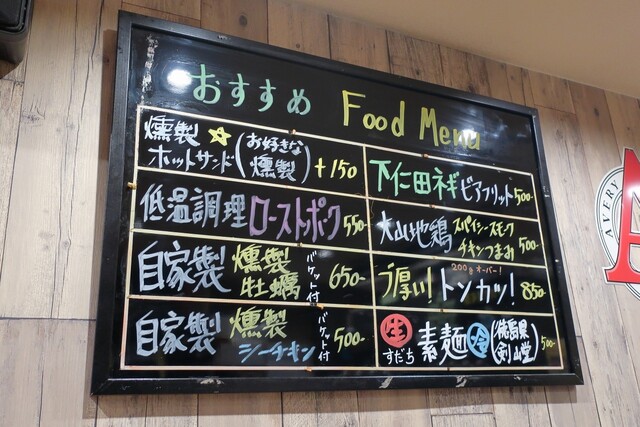 おすすめ Food Menu
燻製☆
ホットサンド(お好きな燻製)+150
低温調理 ローストポーク 550-
自家製 燻製牡蠣 バケット付 650-
自家製 燻製シーチキン バケット付 500-
下仁田祥ビアフリット 500-
大山地鶏 スパイシースモークチキンつまみ 500-
200gオーバー!
厚い!トンカツ! 850-
生すだち 素麺 冷 (徳島県剣山堂) 500-
AVERY